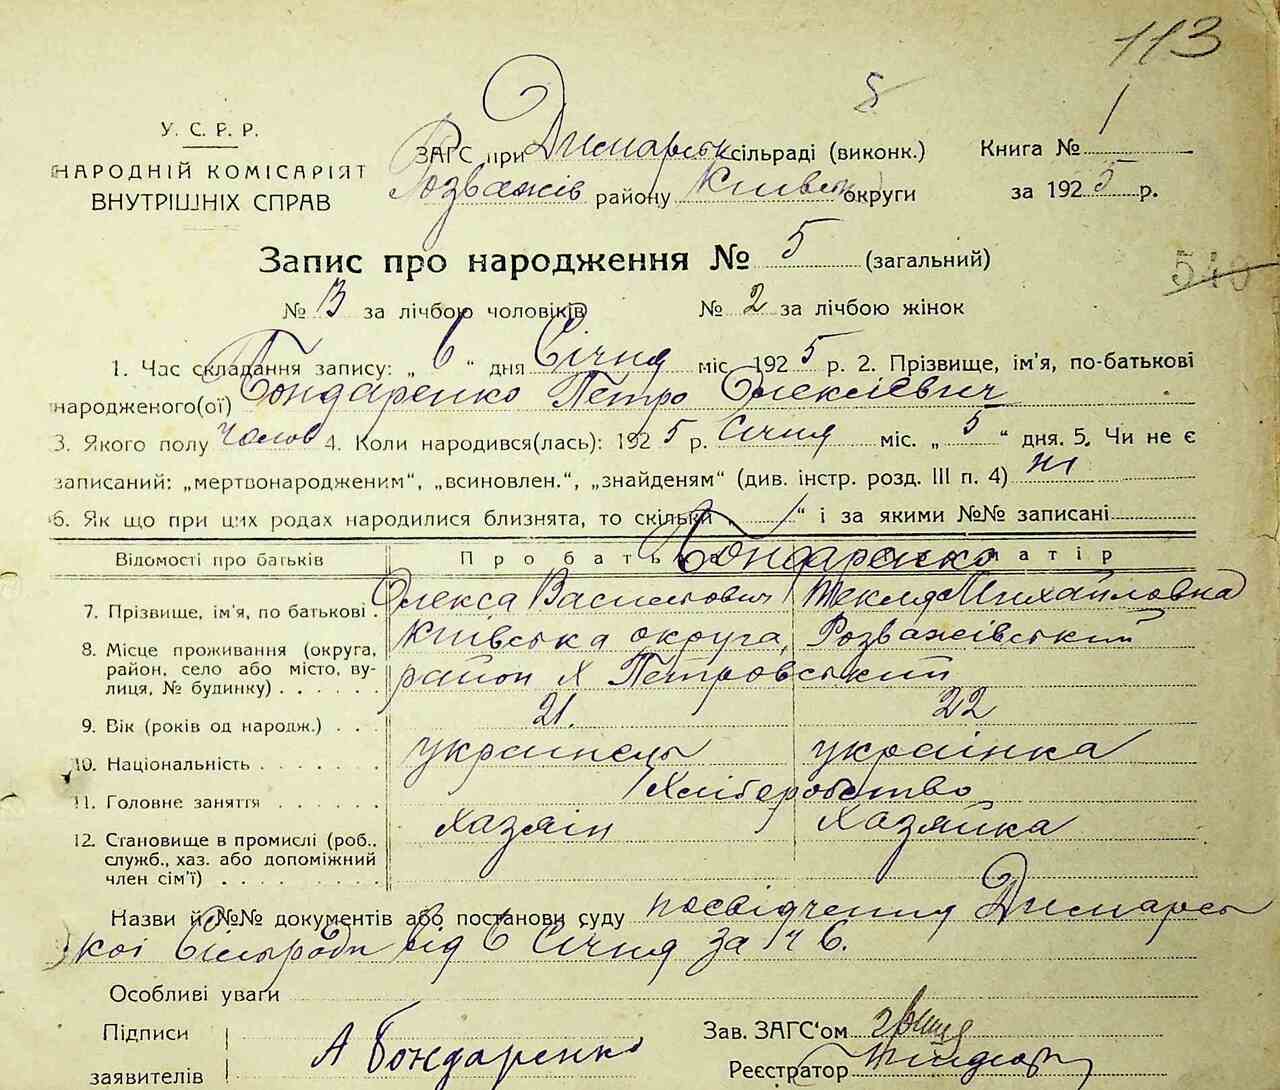 113
5
У. С. Р. Р.
НАРОДНІЙ КОМІСАРІЯТ
ВНУТРІШНІХ СПРАВ
ЗАГС при Димарськ сільраді (виконк.)
Розважів району Київськ округи
Книга № 1
за 1925 р.
Запис про народження № 5 (загальний)
540
№ 3 за лічбою чоловіків № 2 за лічбою жінок
1. Час складання запису: „ 6 “ дня Січня міс. 1925 р. 2. Прізвище, ім'я, по-батькові
народженого(ої) Бондаренко Петро Олексієвич
3. Якого полу Чолов 4. Коли народився(лась): 1925 р. Січня міс. „ 5 “ дня. 5. Чи не є
записаний: „мертвонародженим“, „всиновлен.“, „знайденям“ (див. інстр. розд. III п. 4) ні
6. Як що при цих родах народилися близнята, то скільки „ “ і за якими №№ записані
Відомості про батьків Про батька Про матір
Бондаренко
7. Прізвище, ім'я, по батькові . Олекса Васильович Текля Михайловна
8. Місце проживання (округа, район, село або місто, вулиця, № будинку) . . . . . . Київська округа, Розважівський
район х Петровський
9. Вік (років од народж.) . . . 21. 22
10. Національність . . . . . . . українець українка
11. Головне заняття . . . . . . Хліборобство
12. Становище в промислі (роб., служб., хаз. або допоміжний член сім'ї) . . . . . . . . Хазяїн Хазяйка
Назви й №№ документів або постанови суду посвідчення Димарсь
кої Сільради від 6 Січня за № 6.
Особливі уваги
Підписи
заявителів
А Бондаренко
Зав. ЗАГС'ом
Реєстратор